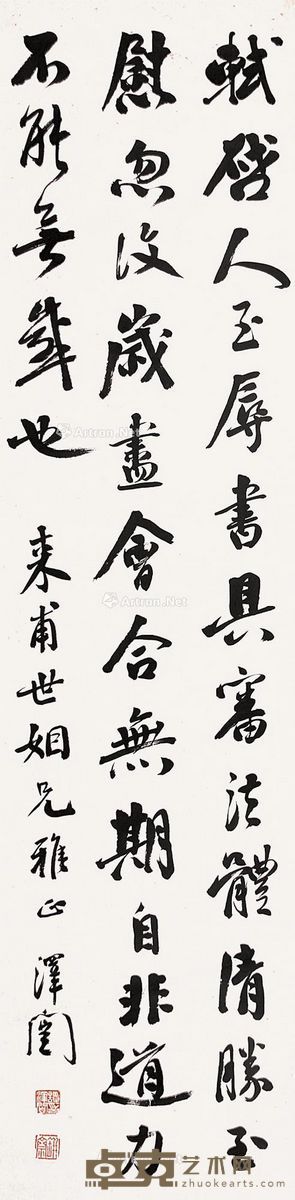 軾啓人至辱書具審法體清勝至
慰忽復歲盡會合無期自非道力
不能無感也
來甫世姻兄雅正 澤闓
Artron.Net
Artron.Net
卓克艺术网
zhuokearts.com